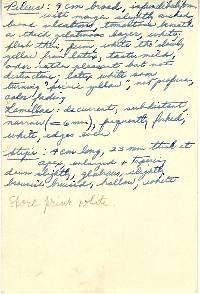 Pileus: 9 cm broad, infundibuliform
with margin slightly arched,
beneath
a thick gelatinous layer, white;
flesh thin, firm, white then slowly
yellow from latex, taste mild,
odor rather pleasant but not
distinctive; latex white soon
turning "picric yellow", not profuse,
color fading
Lamellae: decurrent, subdistant,
narrow (= 6 mm), frequently forked,
white, edges even
Stipe: 4 cm long, 23 mm thick at
apex,
down slightly, glabrous, slightly
bruised, hollow, white
Spore print white.